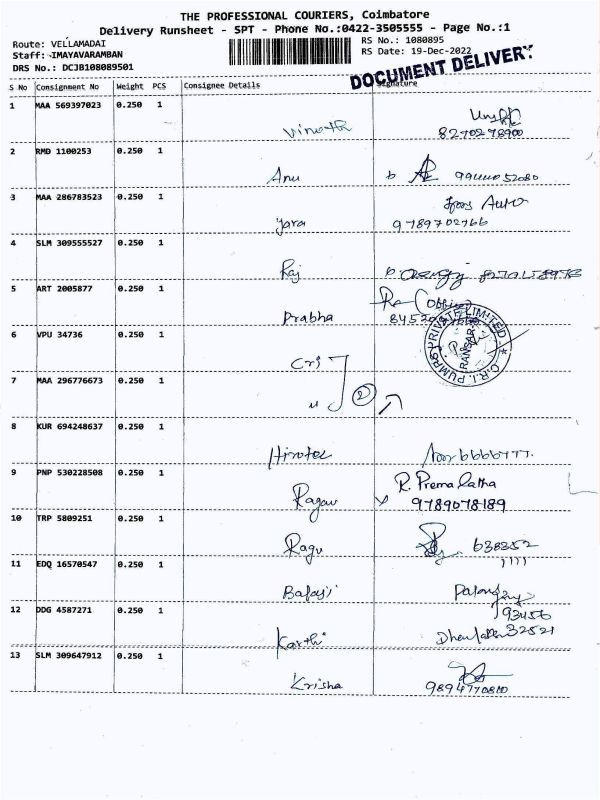 THE PROFESSIONAL COURIERS, Coimbatore
Delivery Runsheet - SPT - Phone No.:0422-3505555 - Page No.:1
Route: VELLAMADAI
Staff: IMAYAVARAMBAN
DRS No.: DCJB108089501
RS No.: 1080895
RS Date: 19-Dec-2022
DOCUMENT DELIVERY
S No Consignment No Weight PCS Consignee Details Signature
1 MAA 569397023 0.250 1
Vinoth 8270278900
2 RMD 1100253 0.250 1
Anu
3 MAA 286783523 0.250 1
Jara Auto
9789702766
4 SLM 309555527 0.250 1
Raj
5 ART 2005877 0.250 1
Prabha
6 VPU 34736 0.250 1
Cri
C.R.I. PUMPS PRIVATE LIMITED
7 MAA 296776673 0.250 1
u 2
8 KUR 694248637 0.250 1
9 PNP 530228508 0.250 1
R. Prema Latha
Ragav 9789078189
10 TRP 5809251 0.250 1
Ragu 638352
11 EDQ 16570547 0.250 1
Balaji
12 DDG 4587271 0.250 1
93456
Karthi 32521
13 SLM 309647912 0.250 1
Krisha 9894770810